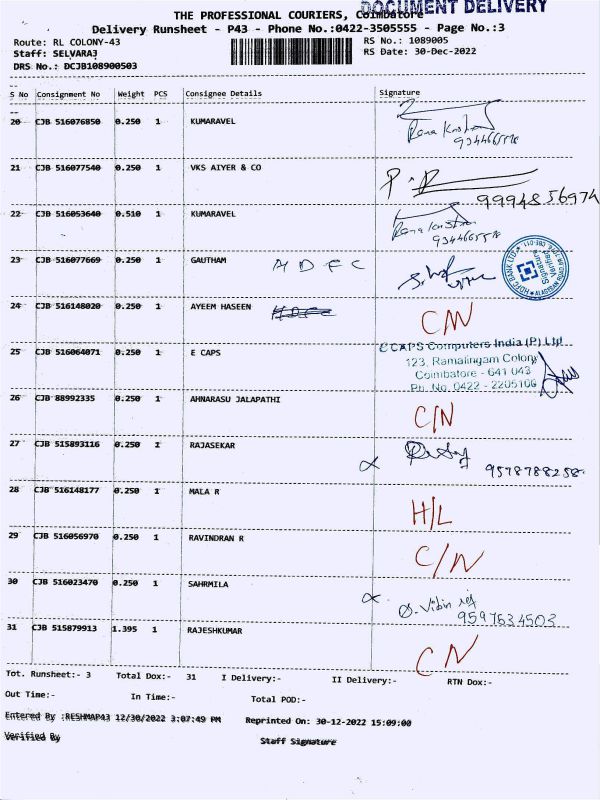 DOCUMENT DELIVERY
THE PROFESSIONAL COURIERS, Coimbatore
Delivery Runsheet - P43 - Phone No.:0422-3505555 - Page No.:3
Route: RL COLONY-43 RS No.: 1089005
Staff: SELVARAJ RS Date: 30-Dec-2022
DRS No.: DCJB108900503
S No Consignment No Weight PCS Consignee Details Signature
20 CJB 516076850 0.250 1 KUMARAVEL
21 CJB 516077540 0.250 1 VKS AIYER & CO
9994856974
22 CJB 516053640 0.510 1 KUMARAVEL
23 CJB 516077669 0.250 1 GAUTHAM HDFC
HDFC BANK LTD
Signature Verified
24 CJB 516148020 0.250 1 AYEEM HASEEN C/N
25 CJB 516064071 0.250 1 E CAPS
E CAPS Computers India (P) Ltd
123, Ramalingam Colony
Coimbatore - 641 043
Ph. No. 0422 - 2205106
26 CJB 88992335 0.250 1 AHNARASU JALAPATHI C/N
27 CJB 515893116 0.250 1 RAJASEKAR
9578788258
28 CJB 516148177 0.250 1 MALA R H/L
29 CJB 516056970 0.250 1 RAVINDRAN R C/N
30 CJB 516023470 0.250 1 SAHRMILA
9597634503
31 CJB 515879913 1.395 1 RAJESHKUMAR CN
Tot. Runsheet:- 3 Total Dox:- 31 I Delivery:- II Delivery:- RTN Dox:-
Out Time:- In Time:- Total POD:-
Entered By :RESHMAP43 12/30/2022 3:07:49 PM Reprinted On: 30-12-2022 15:09:00
Verified By Staff Signature